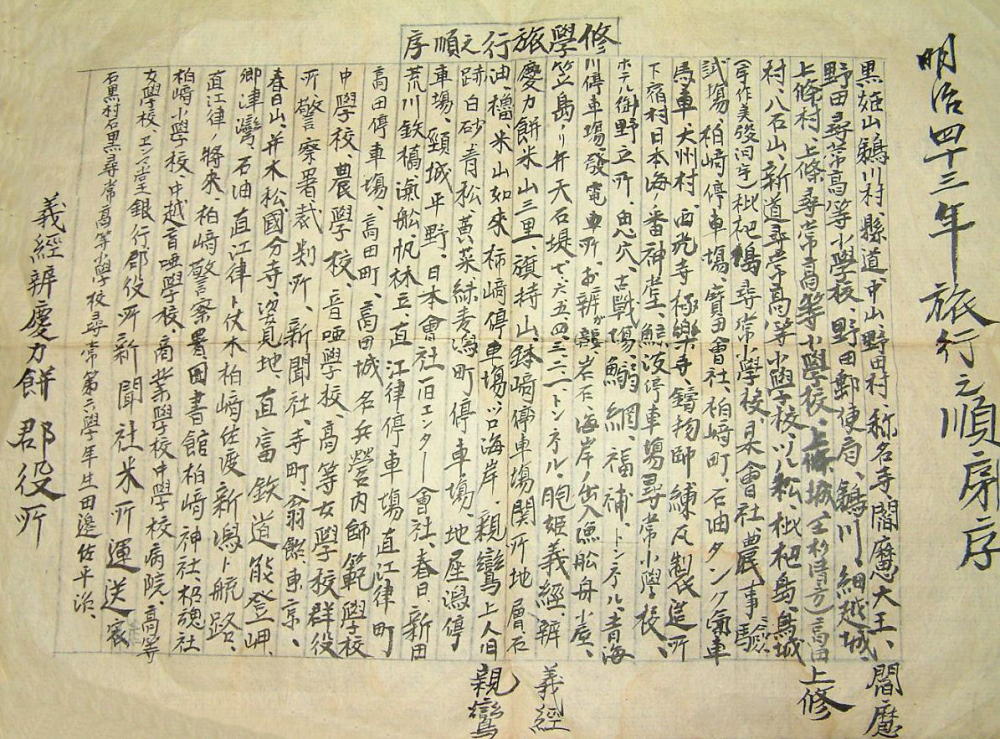 明治四十三年旅行之順序序
修學旅行之順序
黒姫山鵜川村、縣道、中山野田村、称名寺閻魔大王、
野田尋常高等小學校、野田郵便局、鵜川、細越城、
上條村、上條尋常高等小學校、上條城(上杉)高田
村、八石山、新道尋常高等小學校、松、枇杷島、鳥城
枇杷島尋常小學校、日本會社、農事試
試場、柏崎停車場、寳田會社、柏崎町、石油タンク、汽車
馬車、大州村、西光寺、極樂寺、鑄物師、練瓦製造所
下宿村日本海ノ番神堂、鯨波停車場尋常小學校、
ホテル御野立所、鬼穴、古戦場、鰯網、福浦、トンネル、青海
川停車場、發電車所、お辨が瀧岩石海岸ノ出入漁船舟小屋、
笠島ノリ弁天石堤で六五四、三二一トンネル、胞姫義經、辨
慶力餅米山三里、旗持山、鉢崎停車場関所地層石
油、櫓、米山如来、柿崎停車場以口海岸、親鸞上人旧
跡白砂青松、黄菜緑麦潟町停車場、地層潟停
車場、頸城平野、日本會社旧エンター會社、春日新田
荒川鉄橋漁船帆林立、直江律停車場直江律町
高田停車場、高田町、高田城名兵營内師範學校
中學校、農學校、音唖學校、高等女學校群役
所、警察署、裁判所、新聞社、寺町、翁飴、東京、
春日山、并木松國分寺、姿見地、直富鉄道能登岬
郷津灣、石油直江律ト仗木柏崎佐渡新潟ト航路、
直江律ノ將来、柏崎警察署図書館柏崎神社、招魂社
柏崎小學校、中越盲唖學校、商業學校中學校病院、高等
女學校、エンマ堂銀行郡役所新聞社米所運送家
石黒村石黒尋常高等小學校尋常第六學年生田邊佐平治、
閻魔
上修
義經
親鸞
義經辨慶力餅郡役所